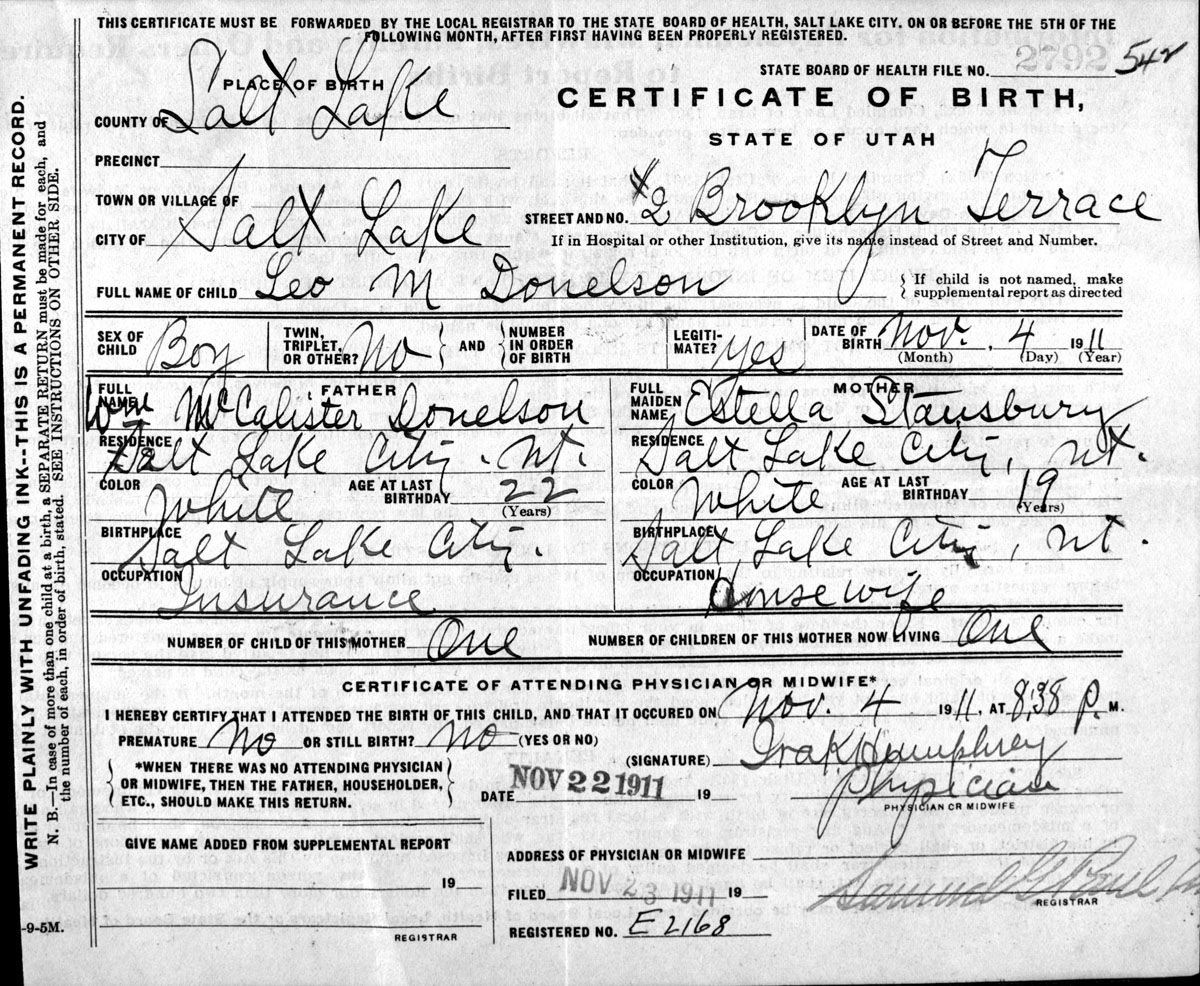 THIS CERTIFICATE MUST BE FORWARDED BY THE LOCAL REGISTRAR TO THE STATE BOARD OF HEALTH, SALT LAKE CITY, ON OR BEFORE THE 5TH OF THE
FOLLOWING MONTH, AFTER FIRST HAVING BEEN PROPERLY REGISTERED.
STATE BOARD OF HEALTH FILE NO. 2792 542
PLACE OF BIRTH
CERTIFICATE OF BIRTH,
COUNTY OF Salt Lake
STATE OF UTAH
PRECINCT
TOWN OR VILLAGE OF
STREET AND NO. 2 Brooklyn Terrace
CITY OF Salt Lake
If in Hospital or other Institution, give its name instead of Street and Number.
FULL NAME OF CHILD Leo M Donelson
If child is not named, make
supplemental report as directed
SEX OF CHILD Boy
TWIN, TRIPLET, OR OTHER? No
AND
NUMBER IN ORDER OF BIRTH
LEGITIMATE? Yes
DATE OF BIRTH Nov. , 4 1911
(Month) (Day) (Year)
FATHER
FULL NAME Wm McCalister Donelson
RESIDENCE Salt Lake City. Ut.
COLOR White
AGE AT LAST BIRTHDAY 22
(Years)
BIRTHPLACE Salt Lake City.
OCCUPATION Insurance
MOTHER
FULL MAIDEN NAME Estella Stansbury
RESIDENCE Salt Lake City, Ut.
COLOR White
AGE AT LAST BIRTHDAY 19
(Years)
BIRTHPLACE Salt Lake City, Ut.
OCCUPATION Housewife
NUMBER OF CHILD OF THIS MOTHER One
NUMBER OF CHILDREN OF THIS MOTHER NOW LIVING One
CERTIFICATE OF ATTENDING PHYSICIAN OR MIDWIFE*
I HEREBY CERTIFY THAT I ATTENDED THE BIRTH OF THIS CHILD, AND THAT IT OCCURED ON Nov. 4 1911, AT 8:38 P. M.
PREMATURE No OR STILL BIRTH? No (YES OR NO)
(SIGNATURE) Ira K Humphrey
*WHEN THERE WAS NO ATTENDING PHYSICIAN
OR MIDWIFE, THEN THE FATHER, HOUSEHOLDER,
ETC., SHOULD MAKE THIS RETURN.
DATE NOV 22 1911 19
Physician
PHYSICIAN OR MIDWIFE
GIVE NAME ADDED FROM SUPPLEMENTAL REPORT
19
REGISTRAR
ADDRESS OF PHYSICIAN OR MIDWIFE
FILED NOV 23 1911 19
Samuel G Paul
REGISTRAR
REGISTERED NO. E2168
-9-5M.
WRITE PLAINLY WITH UNFADING INK--THIS IS A PERMANENT RECORD.
N. B.—In case of more than one child at a birth, a SEPARATE RETURN must be made for each, and
the number of each, in order of birth, stated. SEE INSTRUCTIONS ON OTHER SIDE.